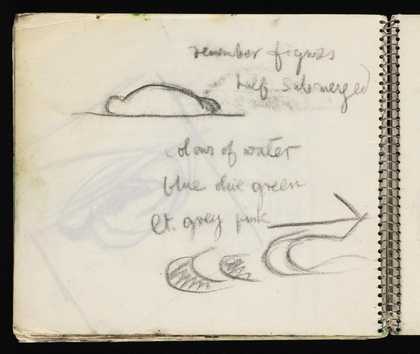 remember figures
half submerged
colours of water
blue olive green
lt. grey pink